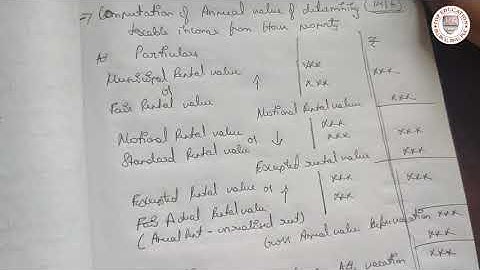 => Computation of Annual value & determining
taxable income from House property
Particulars ₹
Municipal Rental value ↑ xxx
or xxx xxx
Fair Rental value xxx
Notional Rental value
Notional Rental value xxx
or ↓ xxx xxx
Standard Rental value xxx
Expected rental value
Expected Rental value xxx
or ↑ xxx xxx
Actual Rental value
(Annual Rent - unrealized rent) xxx
Gross Annual value Before vacation xxx
xxx
vacation